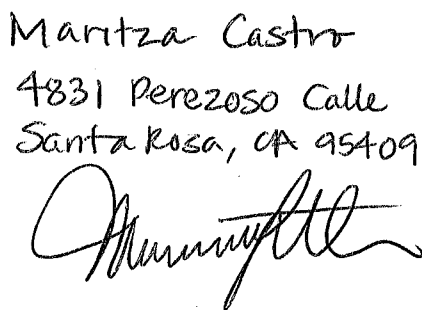 Maritza Castro
4831 Perezoso Calle
Santa Rosa, CA 95409